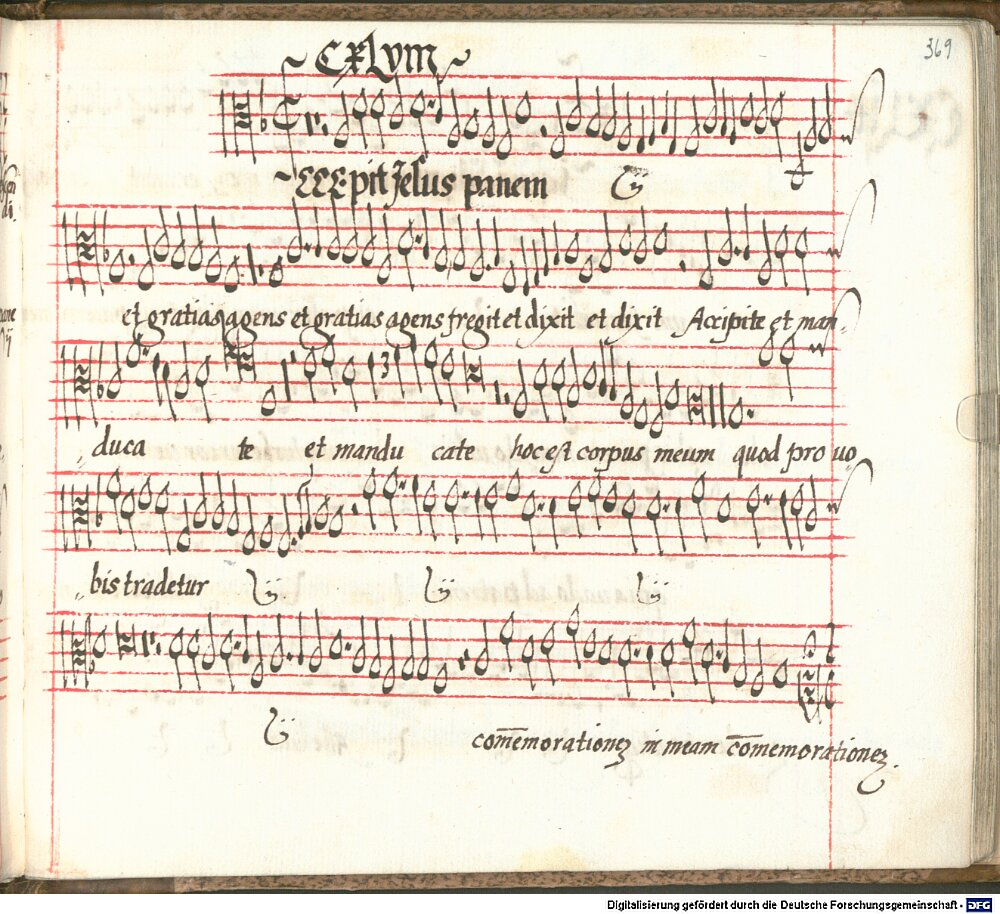 369
CXLVIII
CCCEpit Jesus panem ij
et gratias agens et gratias agens fregit et dixit et dixit Accipite et man
duca te et mandu cate hoc est corpus meum quod pro uo
bis tradetur ij ij ij
ij com̅emorationeʒ in meam com̅emorationeʒ.
Digitalisierung gefördert durch die Deutsche Forschungsgemeinschaft - DFG